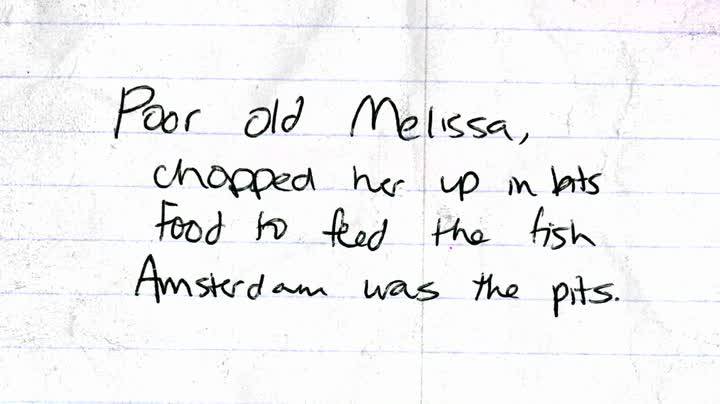 Poor old Melissa,
chopped her up in bits
Food to feed the fish
Amsterdam was the pits.